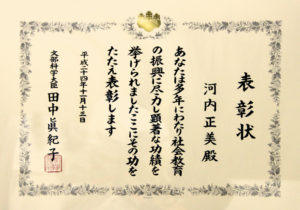 表彰状
河内正美殿
あなたは多年にわたり社会教育
の振興に尽力し顕著な功績を
挙げられましたここにその功を
たたえ表彰します
平成二十四年十二月十三日
文部科学大臣 田中眞紀子